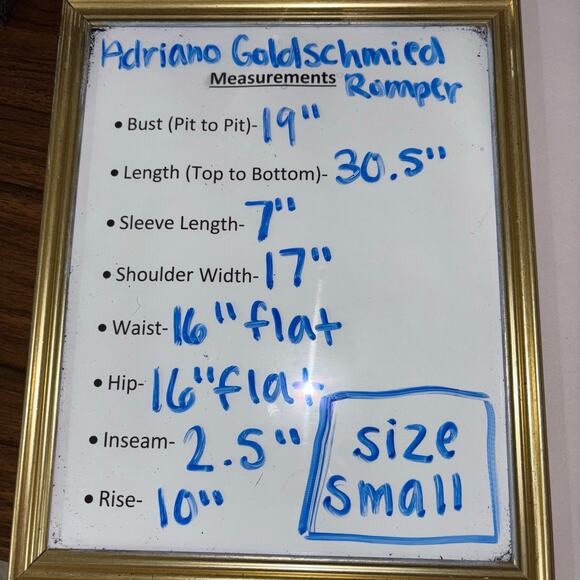 Adriano Goldschmied
Measurements Romper
• Bust (Pit to Pit)- 19"
• Length (Top to Bottom)- 30.5"
• Sleeve Length- 7"
• Shoulder Width- 17"
• Waist- 16" flat
• Hip- 16" flat
• Inseam- 2.5"
• Rise- 10"
size
small